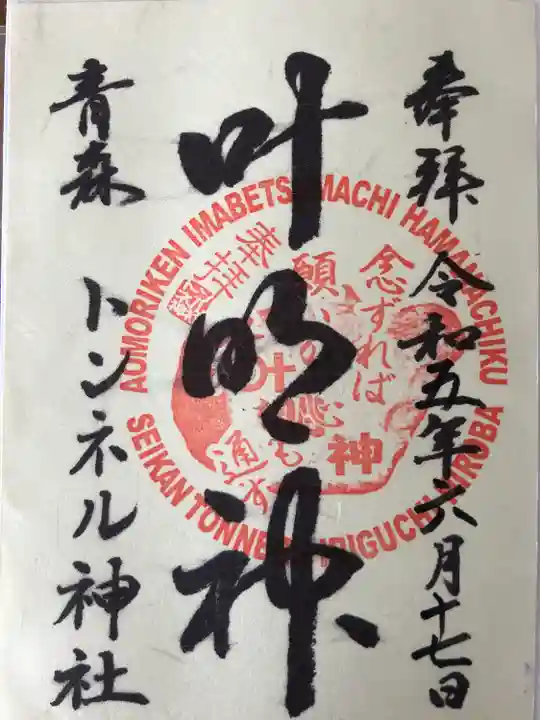 奉拝 令和五年六月十七日
叶明神
青森 トンネル神社
AOMORIKEN IMABETSUMACHI HAMANACHIKU
SEIKAN TONNEL IRIGUCHI HIROBA
念ずれば
願いの
心も
通す
奉拝
叶
神